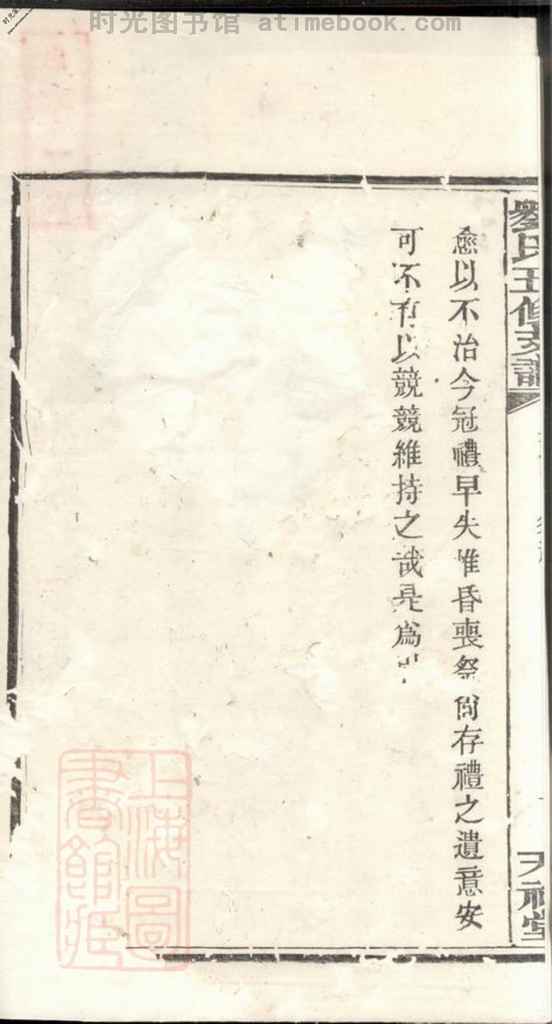 时光图书馆 atimebook.com
劉氏五修支譜
愈以不治今冠禮早失惟昏喪祭尙存禮之遺意安
可不有以競競維持之哉是爲引
天祿堂
上海圖
書館藏